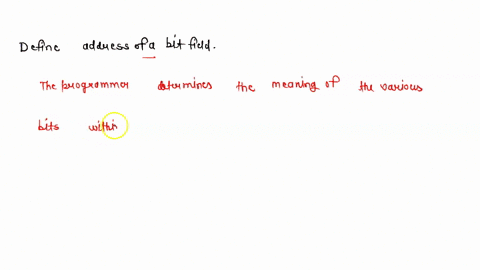 Define address of a bit field.
The programmer determines the meaning of the various
bits within